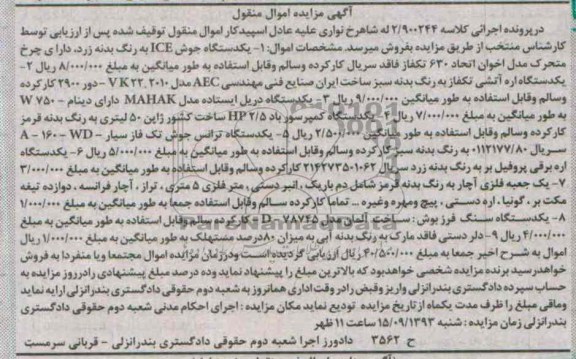 آگهی مزایده اموال منقول
در پرونده اجرائی کلاسه ۲/۹۰۰۲۴۴ له شاهرخ نواری علیه عادل اسپیدکار اموال منقول توقیف شده پس از ارزیابی توسط
کارشناس منتخب از طریق مزایده بفروش میرسد. مشخصات اموال: ۱- یکدستگاه جوش ICE به رنگ بدنه زرد، دارا ی چرخ
متحرک مدل اخوان اتحاد ۶۳۰ تکفاز فاقد سریال کارکرده وسالم وقابل استفاده به طور میانگین به مبلغ ۸/۰۰۰/۰۰۰ ریال ۲-
یکدستگاه اره آتشی تکفاز به رنگ بدنه سبز ساخت ایران صنایع فنی مهندسی AEC مدل VK ۲۲ ۲۰۱۰ - دور ۲۹۰۰ کارکرده
وسالم وقابل استفاده به طور میانگین ۸/۰۰۰/۰۰۰ ریال ۳- یکدستگاه دریل ایستاده مدل MAHAK دارای دینام - W ۷۵۰
به طور میانگین به مبلغ ۷/۰۰۰/۰۰۰ ریال ۴- یکدستگاه کمپرسور باد ۲/۵ HP ساخت کشور ژاپن ۵۰ لیتری به رنگ بدنه قرمز
کارکرده وسالم وقابل استفاده به طور میانگین ۲/۵۰۰/۰۰۰ ریال ۵- یکدستگاه ترانس جوش تک فاز سیار - A - ۱۶۰ - WD
سریال ۰۱۱۲۱۷۷/۸۰ به رنگ بدنه سبز کارکرده وسالم وقابل استفاده به طور میانگین به مبلغ ۵/۰۰۰/۰۰۰ ریال ۶- یکدستگاه
اره برقی پروفیل بر به رنگ بدنه زرد سریال ۲۱۶۲۷۳۵۰۱۰۶۲ کارکرده وسالم وقابل استفاده به طور میانگین به مبلغ ۳/۰۰۰/۰۰۰
۷- یک جعبه فلزی آچار به رنگ بدنه قرمز شامل دم باریک، انبر دستی، متر فلزی ۵ متری، تراز، آچار فرانسه، دوازده تیغه
مکت بر، گونیا، اره دستی، پیچ ومهره وغیره ... تماما کارکرده سالم وقابل استفاده جمعا به طور میانگین به مبلغ ۱/۰۰۰/۰۰۰
۸- یکدستگاه سنگ فرز بوش: ساخت آلمان مدل D - ۷۸۷۴۵ - کارکرده سالم وقابل استفاده به طور میانگین به مبلغ
۴/۰۰۰/۰۰۰ ریال ۹- دلر دستی فاقد مارک به رنگ بدنه آبی به میزان ۸۰ درصد مستهلک به طور میانگین به مبلغ ۱/۰۰۰/۰۰۰ ریال
اموال به شرح اخیر جمعا به مبلغ ۴۰/۵۰۰/۰۰۰ ریال ارزیابی گردیده است ودرزمان مزایده اموال مجتمعا ویا منفردا به فروش
خواهد رسید برنده مزایده شخصی خواهد بود که بالاترین مبلغ را پیشنهاد نماید وده درصد مبلغ پیشنهادی رادر روز مزایده به
حساب سپرده دادگستری بندرانزلی واریز وقبض رادر وقت اداری همانروز به شعبه دوم حقوقی دادگستری بندرانزلی ارایه نماید
ومافی مبلغ را ظرف مدت یکماه از تاریخ مزایده تودیع نماید مکان مزایده: اجرای احکام مدنی شعبه دوم حقوقی دادگستری
بندرانزلی زمان مزایده: شنبه ۱۵/۰۹/۱۳۹۳ ساعت ۱۱ ظهر
ح ۳۵۶۲ دادورز اجرا شعبه دوم حقوقی دادگستری بندرانزلی - قربانی سرمست